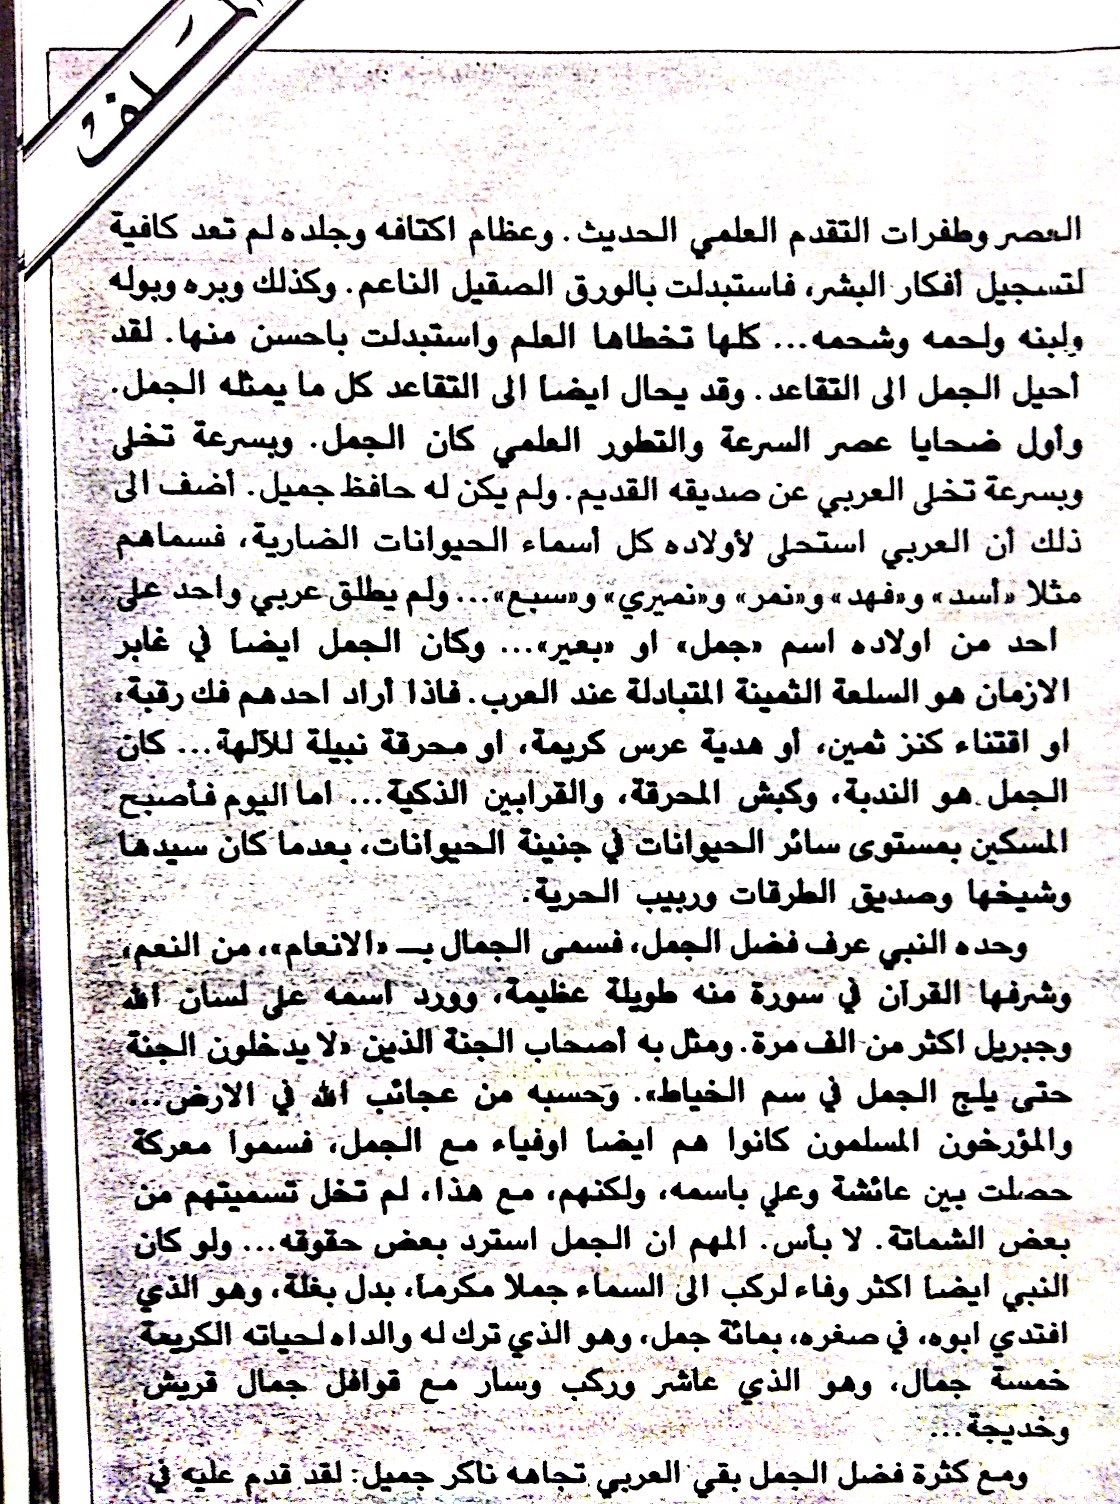 الملف
العصر وطفرات التقدم العلمي الحديث. وعظام اكتافه وجلده لم تعد كافية
لتسجيل أفكار البشر، فاستبدلت بالورق الصقيل الناعم. وكذلك وبره وبوله
ولبنه ولحمه وشحمه... كلها تخطاها العلم واستبدلت باحسن منها. لقد
أحيل الجمل الى التقاعد. وقد يحال ايضا الى التقاعد كل ما يمثله الجمل.
وأول ضحايا عصر السرعة والتطور العلمي كان الجمل. وبسرعة تخلى
وبسرعة تخلى العربي عن صديقه القديم. ولم يكن له حافظ جميل. أضف الى
ذلك أن العربي استحلى لأولاده كل أسماء الحيوانات الضارية، فسماهم
مثلا «أسد» و«فهد» و«نمر» و«نميري» و«سبع»... ولم يطلق عربي واحد على
احد من اولاده اسم «جمل» او «بعير»... وكان الجمل ايضا في غابر
الازمان هو السلعة الثمينة المتبادلة عند العرب. فاذا أراد احدهم فك رقبة،
او اقتناء كنز ثمين، أو هدية عرس كريمة، او محرقة نبيلة للآلهة... كان
الجمل هو الندبة، وكبش المحرقة، والقرابين الذكية... اما اليوم فأصبح
المسكين بمستوى سائر الحيوانات في جنينة الحيوانات، بعدما كان سيدها
وشيخها وصديق الطرقات وربيب الحرية.
وحده النبي عرف فضل الجمل، فسمى الجمال بـ «الانعام»، من النعم،
وشرفها القرآن في سورة منه طويلة عظيمة، وورد اسمه على لسان الله
وجبريل اكثر من الف مرة. ومثل به أصحاب الجنة الذين «لا يدخلون الجنة
حتى يلج الجمل في سم الخياط». وحسبه من عجائب الله في الارض...
والمؤرخون المسلمون كانوا هم ايضا اوفياء مع الجمل، فسموا معركة
حصلت بين عائشة وعلي باسمه، ولكنهم، مع هذا، لم تخل تسميتهم من
بعض الشماتة. لا بأس. المهم ان الجمل استرد بعض حقوقه... ولو كان
النبي ايضا اكثر وفاء لركب الى السماء جملا مكرما، بدل بغلة، وهو الذي
افتدي ابوه، في صغره، بمائة جمل، وهو الذي ترك له والداه لحياته الكريمة
خمسة جمال، وهو الذي عاشر وركب وسار مع قوافل جمال قريش
وخديجة...
ومع كثرة فضل الجمل بقي العربي تجاهه ناكر جميل: لقد قدم عليه في